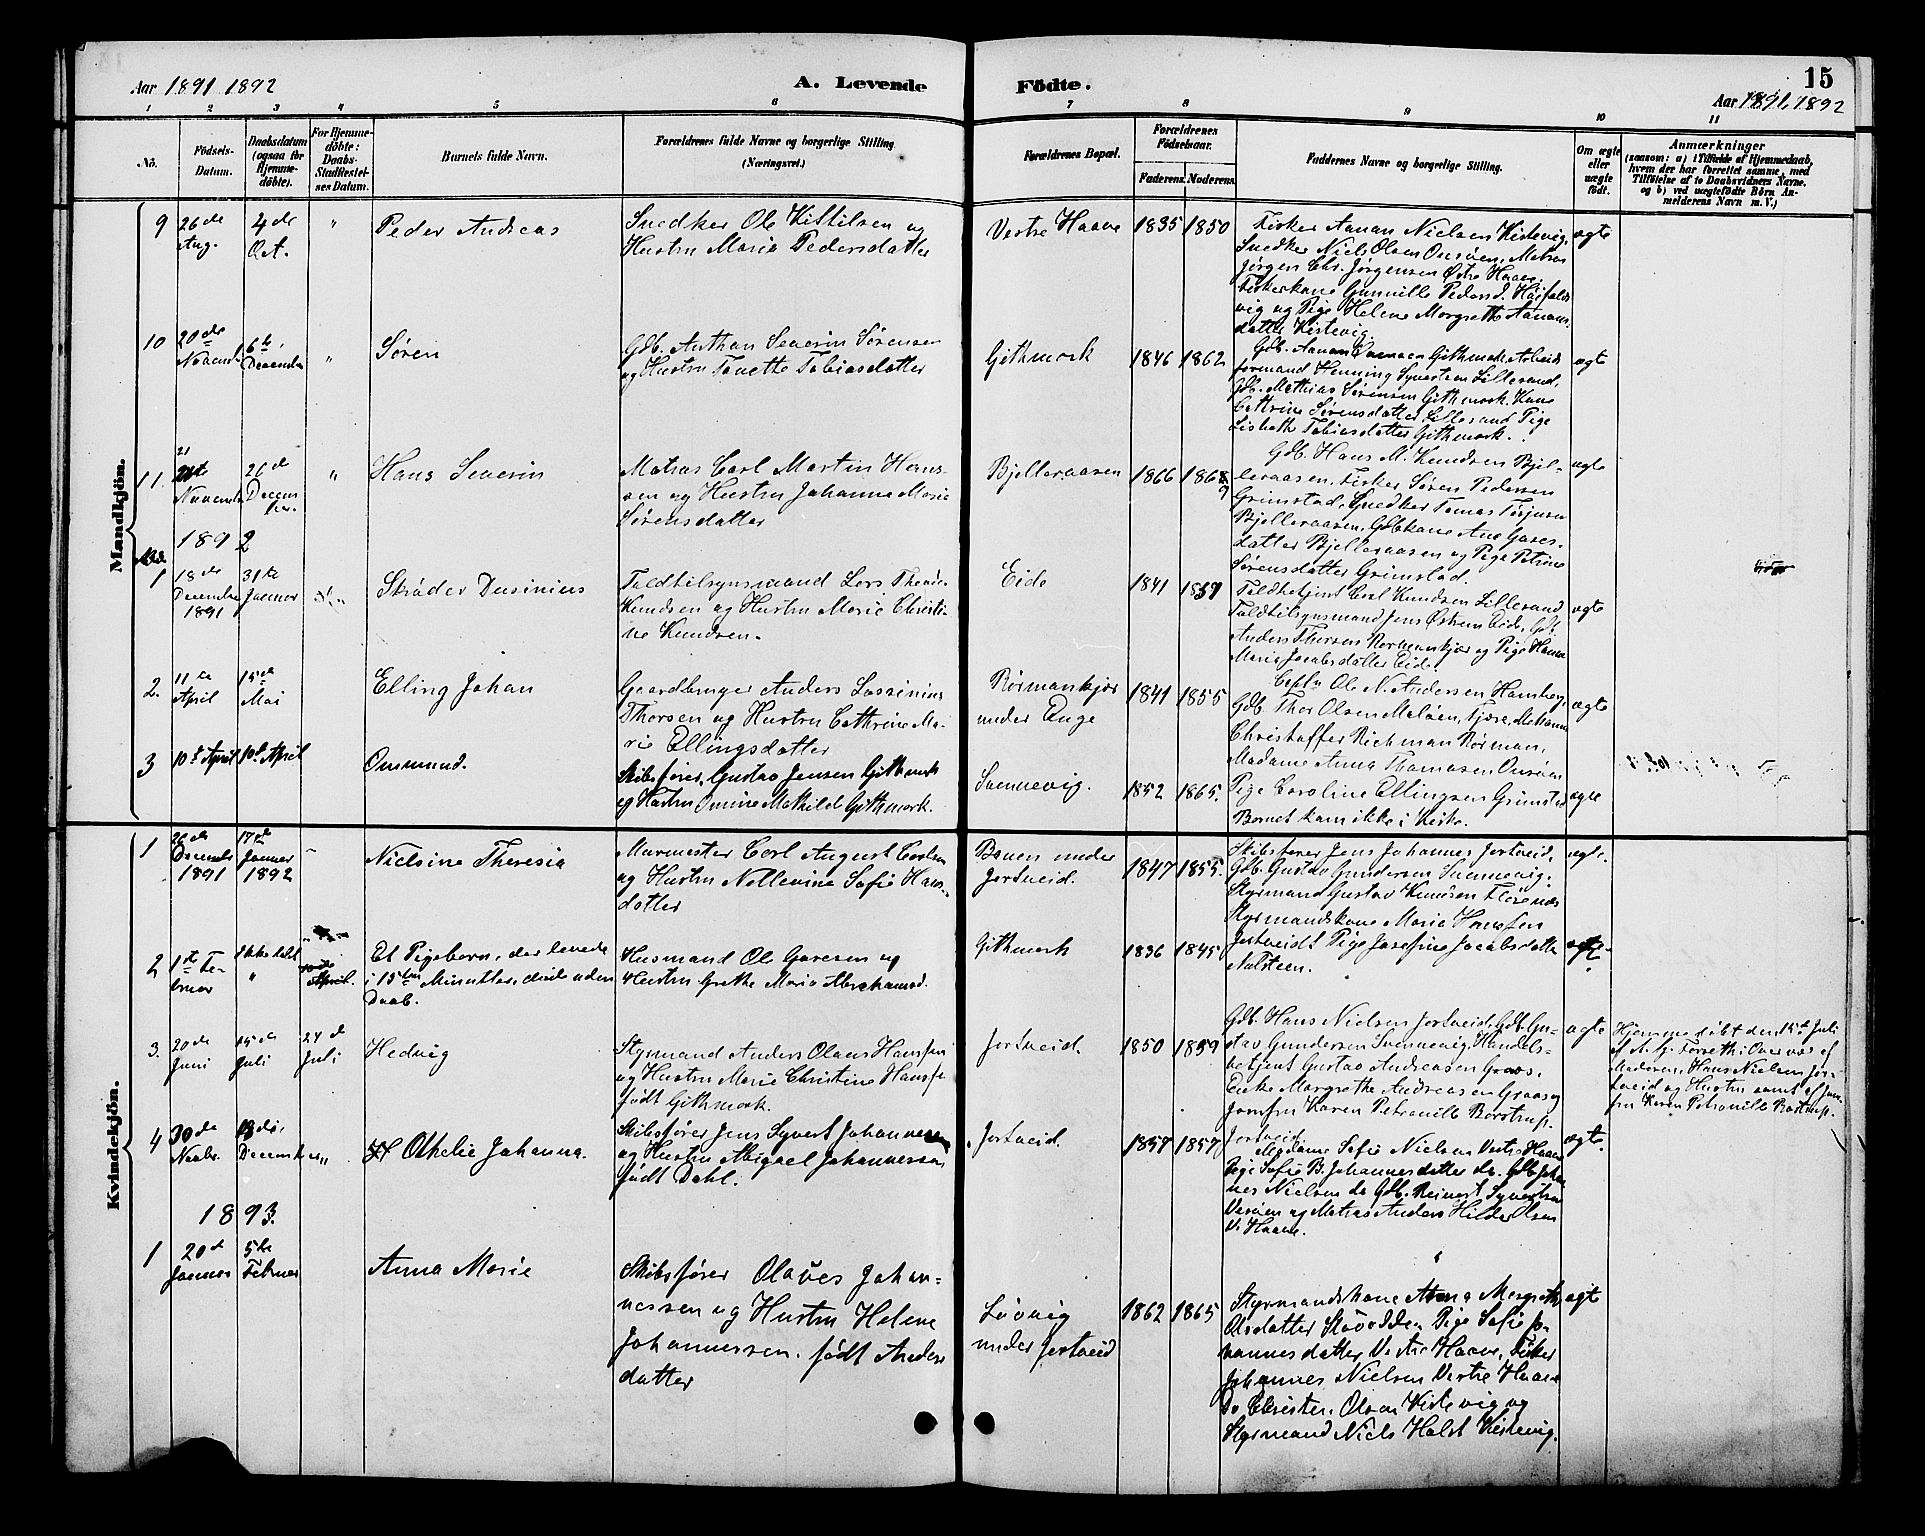 Aar 1891 1892
A. Levende
Födte.
15
Aar 1891, 1892
1 2 3 4 5 6 7 8 9 10 11
No.
Födsels-
Datum.
Daabsdatum
(ogsaa for
Hjemme-
döbte).
For Hjemme-
döbte:
Daabs-
Stadfæstel-
ses Datum.
Barnets fulde Navn.
Forældrenes fulde Navne og borgerlige Stilling
(Næringsvei.)
Forældrenes Bopæl.
Forældrenes
Födselsaar.
Faderens. Moderens.
Faddernes Navne og borgerlige Stilling.
Om ægte
eller
uægte
födt.
Anmærkninger
(saasom: a) i Tilfælde af Hjemmedaab,
hvem der har forrettet samme, med
Tilföielse af to Daabsvidners Navne,
og b) ved uægtefödte Börn An-
melderens Navn m. V.)
Mandkjön.
9
26de
Aug.
4de
Oct.
"
Peder Andreas
Snedker Ole Kittilsen og
Hustru Maria Pedersdatter
Vestre Haave
1835 1850
Fisker Aanan Nielsen Kistevig,
Snedker Niels Olsen Omsöen, Matros
Jørgen Chr. Jørgensen Østre Haave,
Fiskerkone Gunnille Pedersd.
vig og Pige Helene Margrethe Aanons-
datter Kistevig
ægte
10
20de
Novemb.
6te
December
"
Søren
Gdb. Anthon Severin Sørensen
og Hustru Tomette Tobiasdatter
Githmark
1846 1862
Gdb. Aanan Githmark Arbeids
formand Henning Syvertsen Lillesand,
Gdb. Mathias Sørensen Githmark. Kone
Cathrine Sørensdatter Lillesand Pige
Lisbeth Tobiasdatter Githmark.
ægte
11.
21
Novemb.
26de
Decem
ber.
"
Hans Severin
Matros Carl Martin Hans-
sen og Hustru Johanne Marie
Sørensdatter
Bjelleraasen
1866 1868
9
Gdb. Hans M. Knudsen Bjel-
leraasen, Fisker Søren Pedersen
Grimstad, Snedker Tomas Terjusen
Bjelleraasen, Gdbkone Ane Gares-
datter Bjelleraasen og Pige Petrine
Sørensdatter Grimstad.
ægte
1892
1
18de
December
1891
31te
Januar
Strøder Dusinius
Toldtilsynsmand Lars Theodor
Knudsen og Hustru Marie Christi-
ne Knudsen.
Eide
1841 1859
Toldbetjent Carl Knudsen Lillesand
Toldtilsynsmand Jens Østrem Eide, Gdb.
Anders Thorsen Rørmankjær og Pige Hanna
Marie Jacobsdatter Eide.
ægte
2.
11te
April
15de
Mai
Elling Johan
Gaardbruger Anders Lassinius
Thorsen og Hustru Cathrine Ma-
rie Ellingsdatter
Rørmankjær
under Auge
1841 1855
Ole N. Andersen Homborg,
Gdb. Thor Olsen Maløen, Fjære,
Christoffer Richman Rørman,
Madame Anna Thomasen Omsöen
Pige Caroline Ellingsen Grimstad
ægte
3
10de April
10de April
Ommund.
Skibsfører Gustav Jensen Githmark
og Hustru Omine Mathilde Githmark.
Svennevig.
1852 1865.
Barnet kom ikke i Kirke.
ægte
Kvindekjön.
1
26de
Decemb.
1891
17de
Januar
1892
"
Nielsine Theresia
Murmester Carl August Carlsen
og Hustru Nellevine Sofie Hans-
datter
under
Jortveid.
1847 1855.
Skibsfører Jens Johannes Jortveid,
Gdb. Gustav Gundersen Svennevig,
Styrmand Gustav Knudsen
Styrmandskone Marie Hansen
Jortveidt Pige Josefine Jacobsdatter
ægte
2
1ste Fe-
bruar
Ikke døbt
"
Et Pigebarn, der levede
i 15ten Minutter, døde uden
Daab.
Husmand Ole Garesen og
Hustru Grethe Maria Abrahamsd.
Githmark
1836 1845
ægte
3.
20de
Juni
15de
Juli
24de
Juli
Hedvig
Styrmand Anders Olaus Hansen
og Hustru Marie Christine Hansen
født Githmark.
Jortveid.
1850 1859
Gdb. Hans Nielsen Jortveid, Gdb. Gu-
stav Gundersen Svennevig, Handels-
betjent Gustav Andreasen Graos,
Enke Margrethe Andreasen Graos og
Jomfru Karen Petronille Borstrup
Jortveid
ægte
Hjemmedøbt den 15de Juli
af A. G. i Overvær af
Moderen, Hans Nielsen Jor-
tveid og Hustru samt af Jom-
fru Karen Petronille Bostrup.
4
30de
Novbr.
December
"
Othelie Johanna.
Skibsfører Jens Syvert Johannesen
og Hustru Abigael Johannesen
født Dahl.
Jortveid.
1857 1857
Madame Sofie Nielsen Vestre Haave
Pige Sofie B. Johannesdatter do. Gdb. Johan
nes Nielsen do Gdb. Reinert Syvertsen
og Matros Anders Hilder Olsen
V. Haave.
ægte.
1893.
1
20de
Januar
5te
Februar
Anna Marie
Skibsfører Olaves Johan-
nessen og Hustru Helene
Johannessen. født Anders
datter
Løvvig
under Jortveid
1862 1865
Styrmandskone Anna Margrethe
Olsdatter Pige Sofie Jo-
hannesdatter Vestre Haave, Fisker
Johannes Nielsen Vestre Haave
Do Christen Olsen Kistevig og
Styrmand Niels Holst Kistevig.
ægte